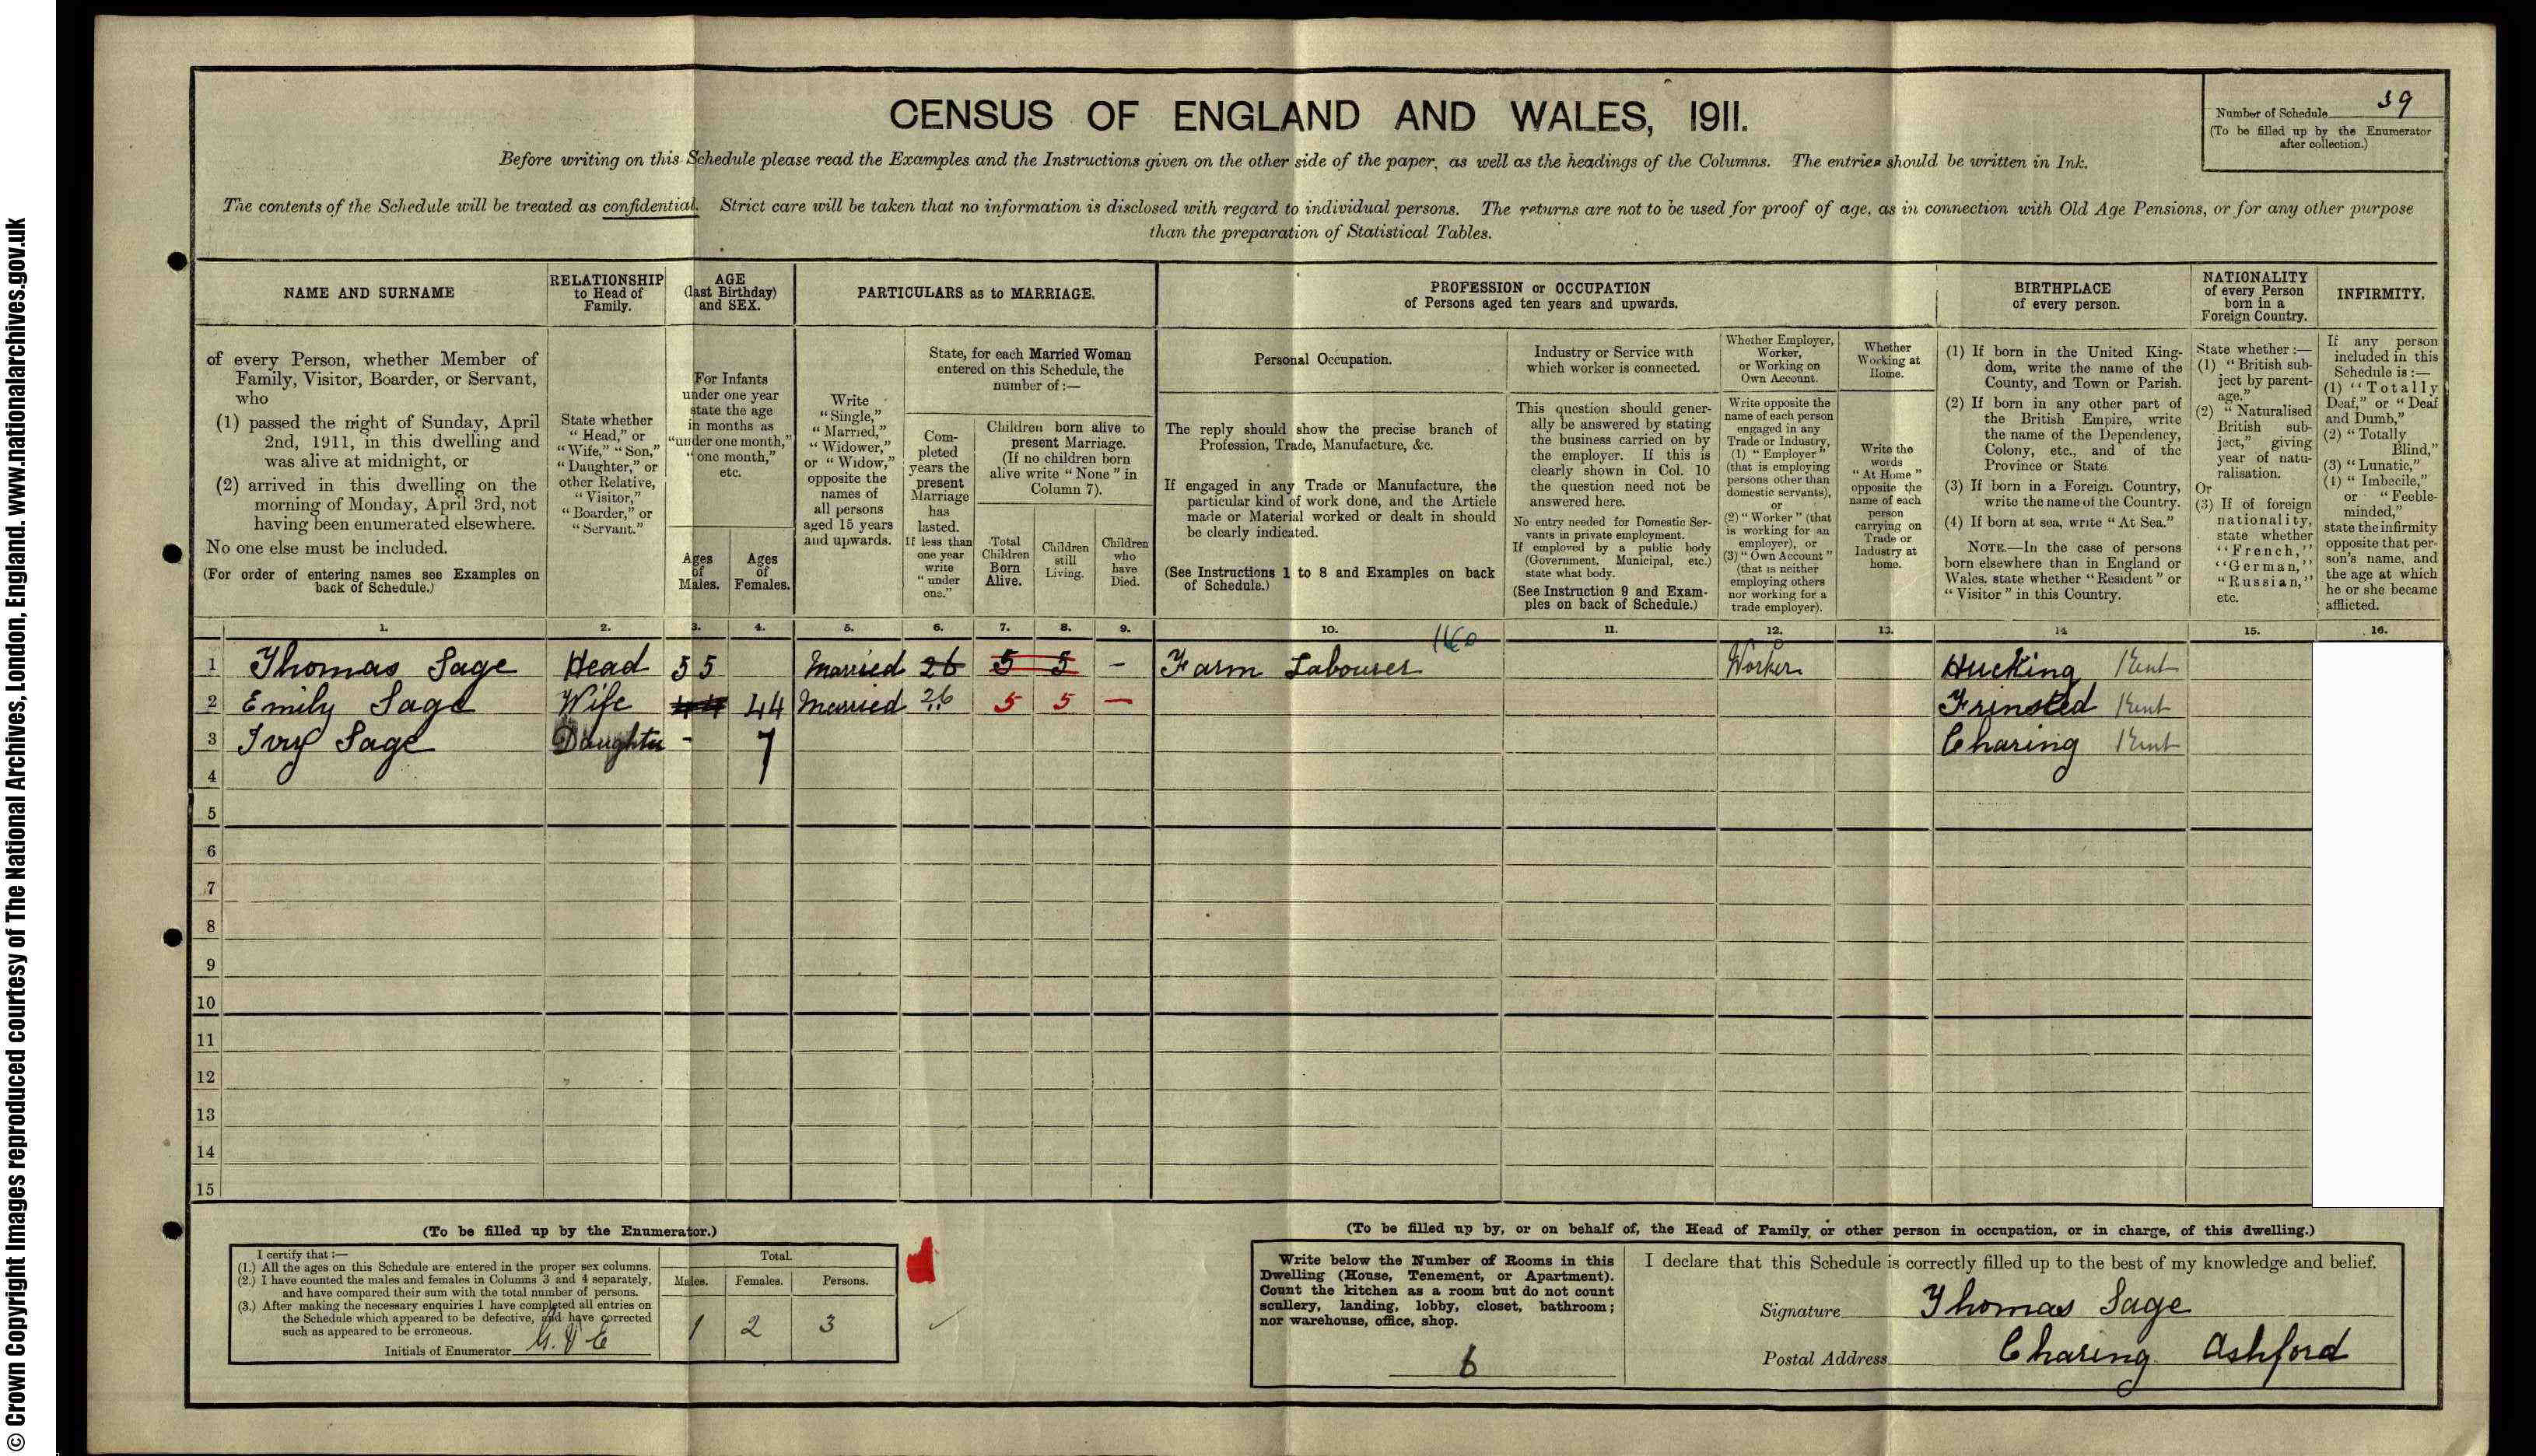 © Crown Copyright Images reproduced courtesy of The National Archives, London, England. www.nationalarchives.gov.uk
CENSUS OF ENGLAND AND WALES, 1911.
Number of Schedule 39
(To be filled up by the Enumerator
after collection.)
Before writing on this Schedule please read the Examples and the Instructions given on the other side of the paper, as well as the headings of the Columns. The entries should be written in Ink.
The contents of the Schedule will be treated as confidential. Strict care will be taken that no information is disclosed with regard to individual persons. The returns are not to be used for proof of age, as in connection with Old Age Pensions, or for any other purpose
than the preparation of Statistical Tables.
NAME AND SURNAME
of every Person, whether Member of
Family, Visitor, Boarder, or Servant,
who
(1) passed the night of Sunday, April
2nd, 1911, in this dwelling and
was alive at midnight, or
(2) arrived in this dwelling on the
morning of Monday, April 3rd, not
having been enumerated elsewhere.
No one else must be included.
(For order of entering names see Examples on
back of Schedule.)
RELATIONSHIP
to Head of
Family.
State whether
"Head," or
"Wife," "Son,"
"Daughter," or
other Relative,
"Visitor,"
"Boarder," or
"Servant."
AGE
(last Birthday)
and SEX.
For Infants
under one year
state the age
in months as
"under one month,"
"one month,"
etc.
Ages
of
Males.
Ages
of
Females.
PARTICULARS as to MARRIAGE.
Write
"Single,"
"Married,"
"Widower,"
or "Widow,"
opposite the
names of
all persons
aged 15 years
and upwards.
State, for each Married Woman
entered on this Schedule, the
number of:—
Com-
pleted
years the
present
Marriage
has
lasted.
If less than
one year
write
"under
one."
Children born alive to
present Marriage.
(If no children born
alive write "None" in
Column 7).
Total
Children
Born
Alive.
Children
still
Living.
Children
who
have
Died.
PROFESSION or OCCUPATION
of Persons aged ten years and upwards.
Personal Occupation.
The reply should show the precise branch of
Profession, Trade, Manufacture, &c.
If engaged in any Trade or Manufacture, the
particular kind of work done, and the Article
made or Material worked or dealt in should
be clearly indicated.
(See Instructions 1 to 8 and Examples on back
of Schedule.)
Industry or Service with
which worker is connected.
This question should gener-
ally be answered by stating
the business carried on by
the employer. If this is
clearly shown in Col. 10
the question need not be
answered here.
No entry needed for Domestic Ser-
vants in private employment.
If employed by a public body
(Government, Municipal, etc.)
state what body.
(See Instruction 9 and Exam-
ples on back of Schedule.)
Whether Employer,
Worker,
or Working on
Own Account.
Write opposite the
name of each person
engaged in any
Trade or Industry,
(1) "Employer"
(that is employing
persons other than
domestic servants),
or
(2) "Worker" (that
is working for an
employer), or
(3) "Own Account"
(that is neither
employing others
nor working for a
trade employer).
Whether
Working at
Home.
Write the
words
"At Home"
opposite the
name of each
person
carrying on
Trade or
Industry at
home.
BIRTHPLACE
of every person.
(1) If born in the United King-
dom, write the name of the
County, and Town or Parish.
(2) If born in any other part of
the British Empire, write
the name of the Dependency,
Colony, etc., and of the
Province or State.
(3) If born in a Foreign Country,
write the name of the Country.
(4) If born at sea, write "At Sea."
NOTE.—In the case of persons
born elsewhere than in England or
Wales, state whether "Resident" or
"Visitor" in this Country.
NATIONALITY
of every Person
born in a
Foreign Country.
State whether:—
(1) "British sub-
ject by parent-
age."
(2) "Naturalised
British sub-
ject," giving
year of natu-
ralisation.
Or
(3) If of foreign
nationality,
state whether
"French,"
"German,"
"Russian,"
etc.
INFIRMITY.
If any person
included in this
Schedule is:—
(1) "Totally
Deaf," or "Deaf
and Dumb,"
(2) "Totally
Blind,"
(3) "Lunatic,"
(4) "Imbecile,"
or "Feeble-
minded,"
state the infirmity
opposite that per-
son's name, and
the age at which
he or she became
afflicted.
1. 2. 3. 4. 5. 6. 7. 8. 9. 10. 11. 12. 13. 14 15. 16.
1 Thomas Sage Head 55 Married 26 5 5 – Farm Labourer Worker Hucking Kent
2 Emily Sage Wife 44 44 Married 26 5 5 – Frinsted Kent
3 Ivy Sage Daughter - 7 Charing Kent
4
5
6
7
8
9
10
11
12
13
14
15
(To be filled up by the Enumerator.)
I certify that:—
(1.) All the ages on this Schedule are entered in the proper sex columns.
(2.) I have counted the males and females in Columns 3 and 4 separately,
and have compared their sum with the total number of persons.
(3.) After making the necessary enquiries I have completed all entries on
the Schedule which appeared to be defective, and have corrected
such as appeared to be erroneous.
Initials of Enumerator
Total.
Males. Females. Persons.
1 2 3
(To be filled up by, or on behalf of, the Head of Family, or other person in occupation, or in charge, of this dwelling.)
Write below the Number of Rooms in this
Dwelling (House, Tenement, or Apartment).
Count the kitchen as a room but do not count
scullery, landing, lobby, closet, bathroom;
nor warehouse, office, shop.
6
I declare that this Schedule is correctly filled up to the best of my knowledge and belief.
Signature Thomas Sage
Postal Address Charing Ashford